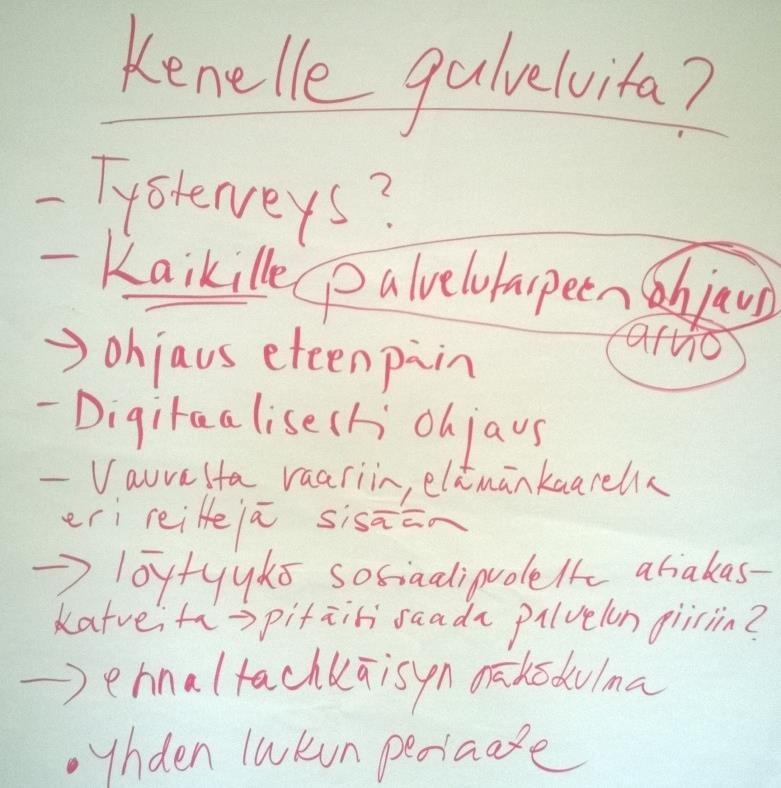 Kenelle palveluita?
- Työterveys?
- Kaikille palvelutarpeen ohjaus
arvio
→ ohjaus eteenpäin
- Digitaalisesti ohjaus
- Vauvasta vaariin, elämänkaarella
eri reittejä sisään
→ löytyykö sosiaalipuolelta asiakas-
katveita → pitäisi saada palvelun piiriin?
→ ennaltaehkäisyn näkökulma
• yhden luukun periaate